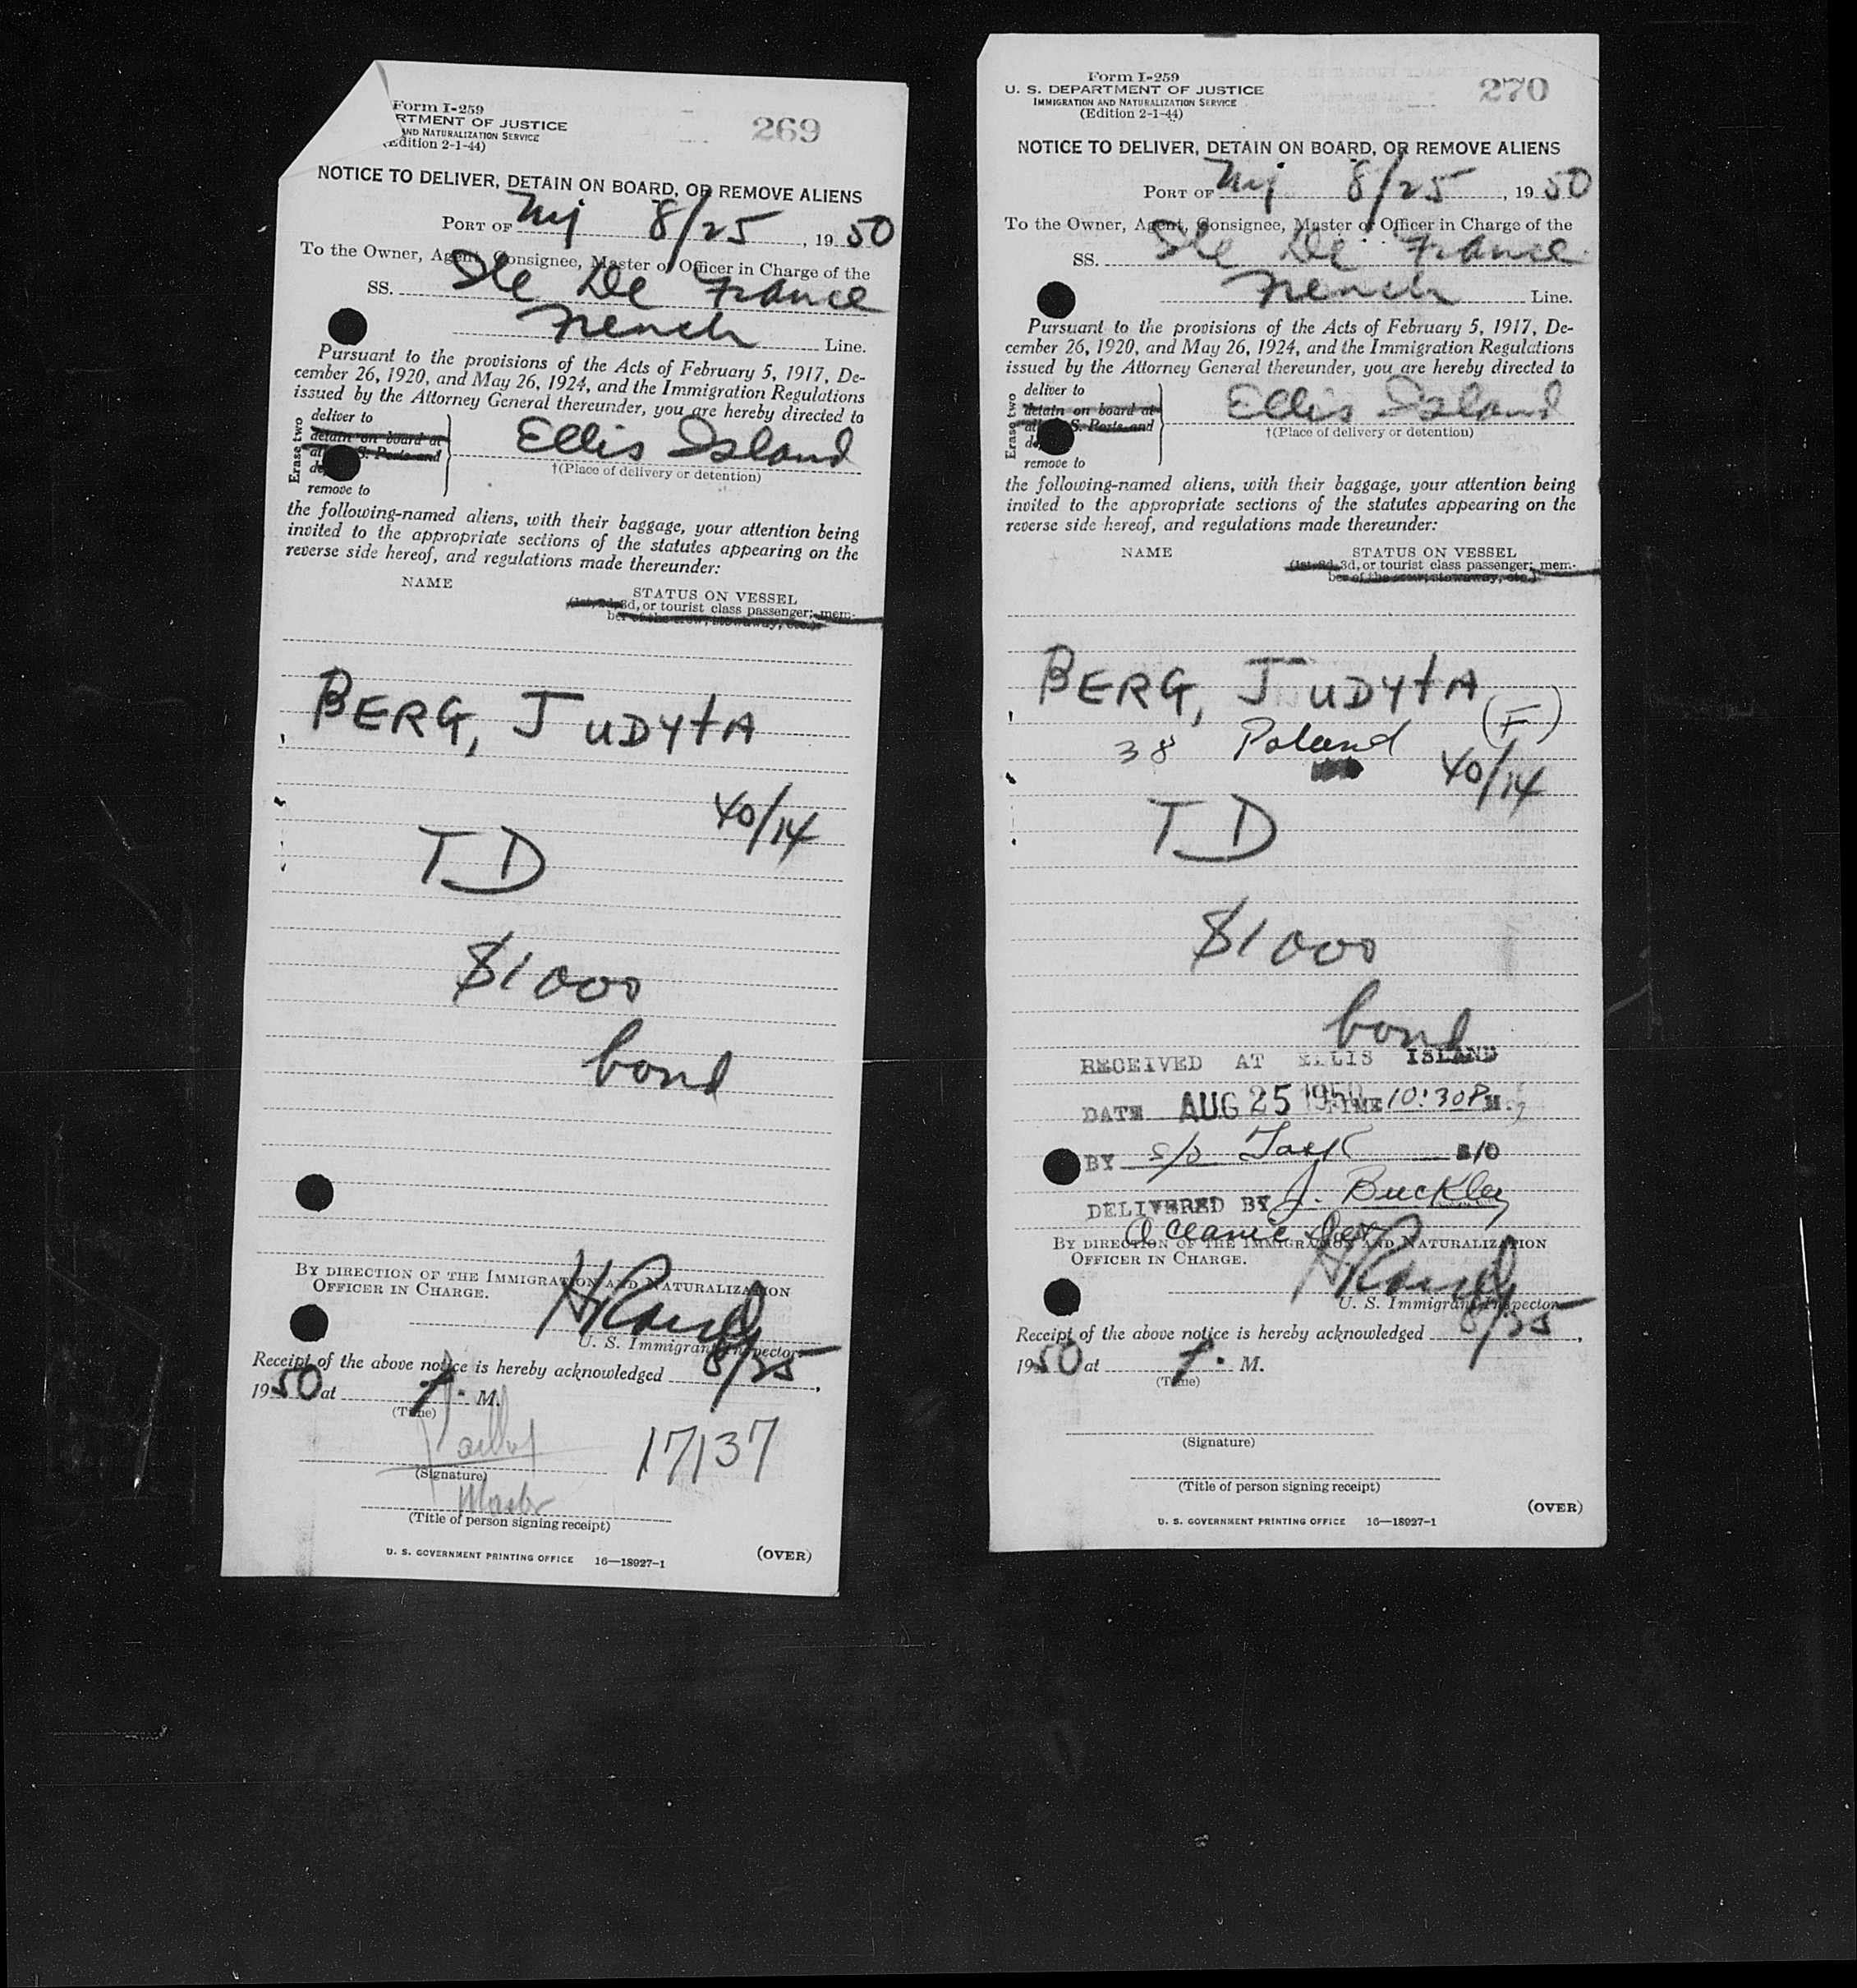 Form I-259
RTMENT OF JUSTICE
AND NATURALIZATION SERVICE
(Edition 2-1-44)
269
NOTICE TO DELIVER, DETAIN ON BOARD, OR REMOVE ALIENS
PORT OF NY 8/25, 1950
To the Owner, Agent, Consignee, Master or Officer in Charge of the
SS. Ile De France
French Line.
Pursuant to the provisions of the Acts of February 5, 1917, De-
cember 26, 1920, and May 26, 1924, and the Immigration Regulations
issued by the Attorney General thereunder, you are hereby directed to
Erase two
deliver to
detain on board at
at S. Ports and
de
remove to
Ellis Island
†(Place of delivery or detention)
the following-named aliens, with their baggage, your attention being
invited to the appropriate sections of the statutes appearing on the
reverse side hereof, and regulations made thereunder:
NAME
STATUS ON VESSEL
(1st, 2d, 3d, or tourist class passenger; mem-
ber of the crew; stowaway, etc.)
BERG, JUDYTA
40/14
TD
$1000
bond
BY DIRECTION OF THE IMMIGRATION AND NATURALIZATION
OFFICER IN CHARGE.
U. S. Immigrant Inspector
Receipt of the above notice is hereby acknowledged 8/25,
1950 at M.
(Time)
17137
(Signature)
Master
(Title of person signing receipt)
U. S. GOVERNMENT PRINTING OFFICE 16—18927-1
(OVER)
Form I-259
U. S. DEPARTMENT OF JUSTICE
IMMIGRATION AND NATURALIZATION SERVICE
(Edition 2-1-44)
270
NOTICE TO DELIVER, DETAIN ON BOARD, OR REMOVE ALIENS
PORT OF NY 8/25, 1950
To the Owner, Agent, Consignee, Master or Officer in Charge of the
SS. Ile De France
French Line.
Pursuant to the provisions of the Acts of February 5, 1917, De-
cember 26, 1920, and May 26, 1924, and the Immigration Regulations
issued by the Attorney General thereunder, you are hereby directed to
Erase two
deliver to
detain on board at
at S. Ports and
de
remove to
Ellis Island
†(Place of delivery or detention)
the following-named aliens, with their baggage, your attention being
invited to the appropriate sections of the statutes appearing on the
reverse side hereof, and regulations made thereunder:
NAME
STATUS ON VESSEL
(1st, 2d, 3d, or tourist class passenger; mem-
ber of the crew; stowaway, etc.)
BERG, JUDYTA (F)
38 Poland
40/14
TD
$1000
bond
RECEIVED AT ELLIS ISLAND
DATE AUG 25 1950 TIME 10:30 P M.
BY S/O
DELIVERED BY J. Buckley
BY DIRECTION OF THE IMMIGRATION AND NATURALIZATION
OFFICER IN CHARGE.
U. S. Immigrant Inspector
Receipt of the above notice is hereby acknowledged 8/25,
1950 at M.
(Time)
(Signature)
(Title of person signing receipt)
(OVER)
U. S. GOVERNMENT PRINTING OFFICE 16—18927-1